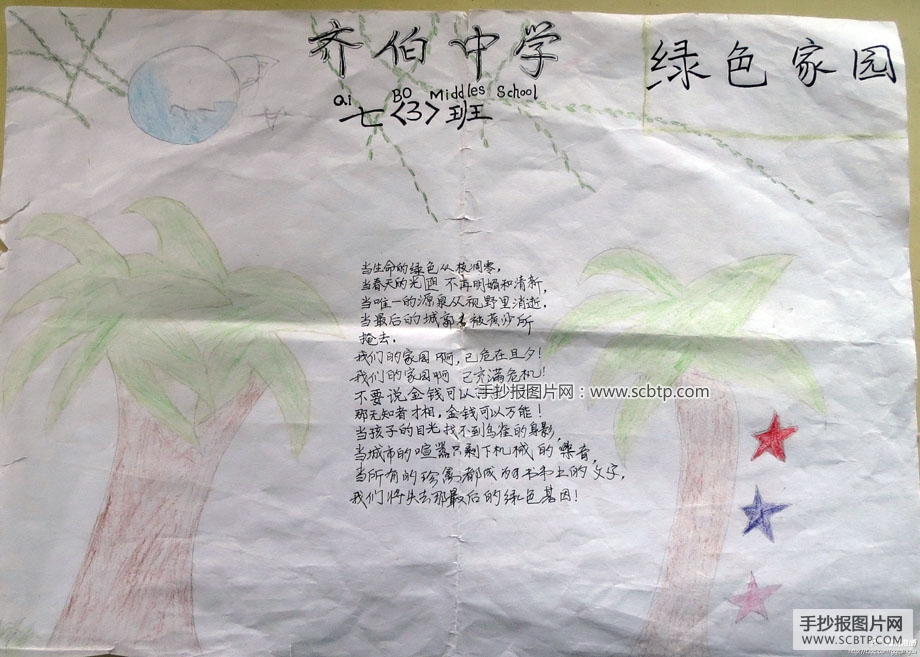 齐伯中学
绿色家园
Qi BO Middles School
七<3>班
当生命的绿色从枝凋零,
当春天的光 不再明媚和清新,
当唯一的源泉从视野里消逝.
当最后的城 被黄沙所
掩去.
我们的家园啊,已危在旦夕!
我们的家园啊 已充满危机!
不要说金钱可以
手抄报图片网:www.scbtp.com
那无知者才相,金钱可以万能!
当孩子的目光找不到鸟雀的身影,
当城市的喧嚣只剩下机械的噪音,
当所有的珍禽都成为书上的文字,
我们将失去那最后的绿色基因!
手抄报图片网
WWW.SCBTP.COM